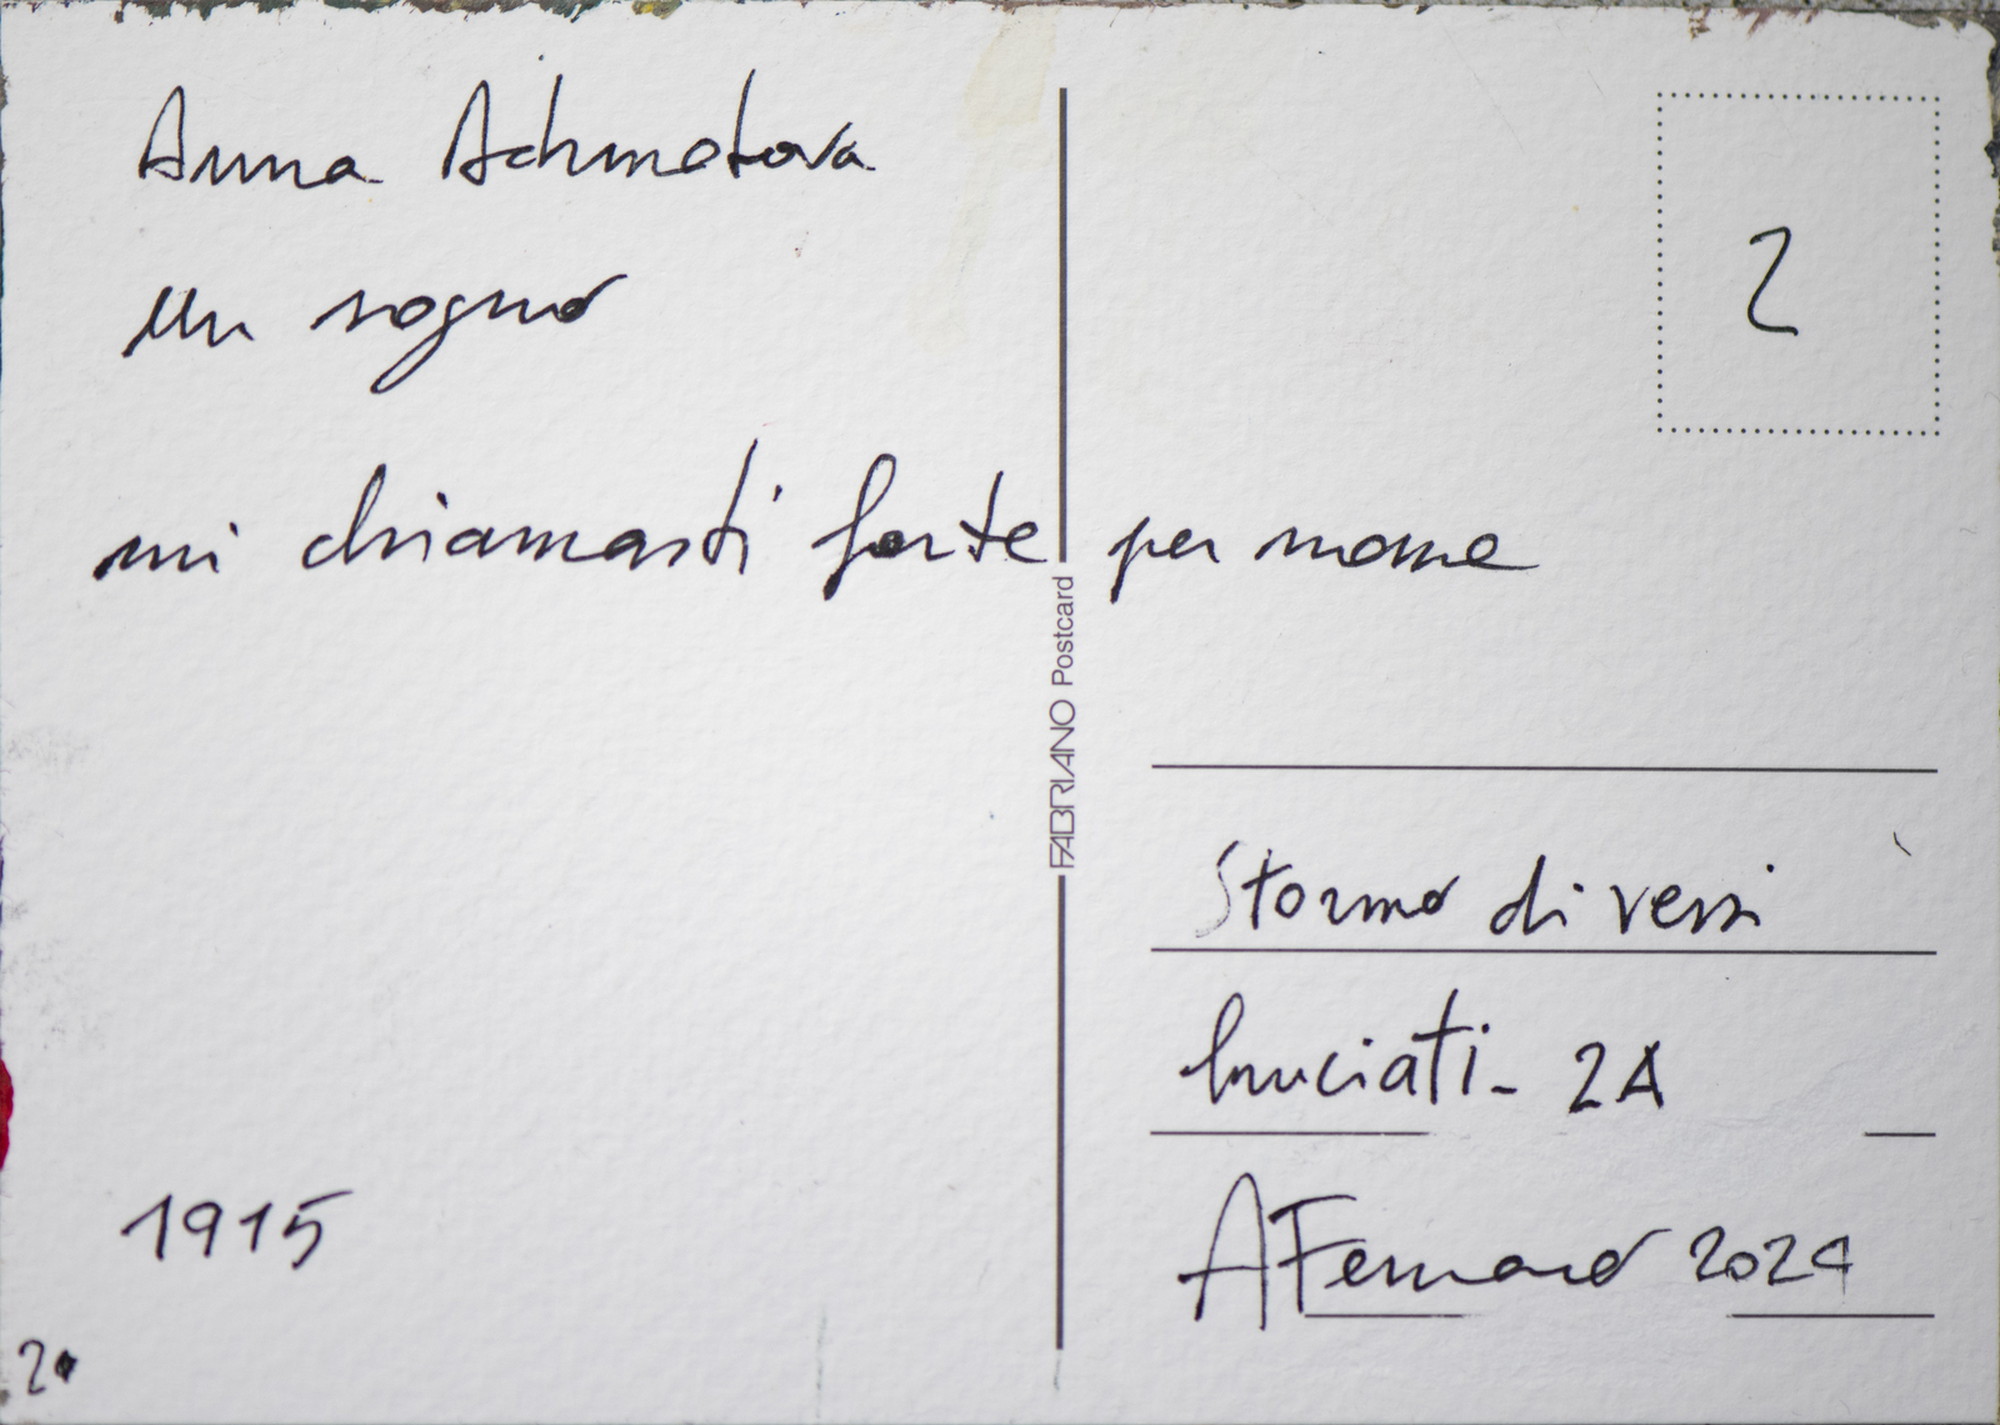 Anna Achmatova
2
un sogno
mi chiamasti forte per nome
FABRIANO Postcard
Stormo di versi
bruciati - 2A
1915
AFerraro 2024